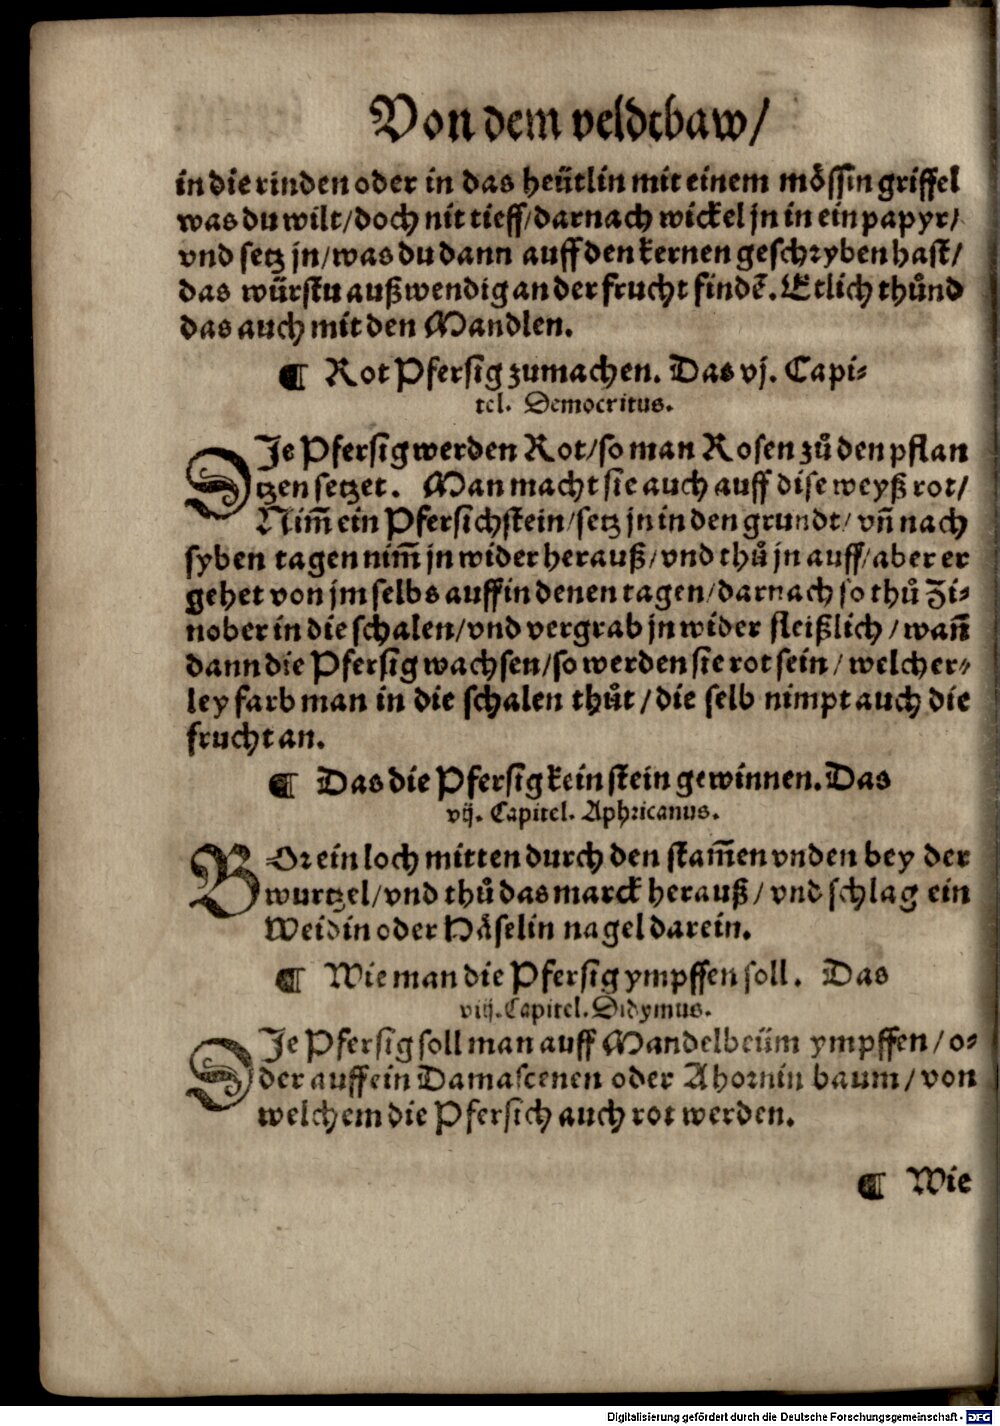 Von dem veldtbaw/
in die rinden oder in das heütlin mit einem mössin griffel
was du wilt/doch nit tieff/darnach wickel jn in ein papyr/
vnd setz jn/was du dann auff den kernen geschryben hast/
das würstu außwendig an der frucht findē. Etlich thůnd
das auch mit den Mandlen.
¶ Rot Pfersig zumachen. Das vj. Capi⸗
tel. Democritus.
DJe Pfersig werden Rot/so man Rosen zů den pflan
tzen setzet. Man macht sie auch auff dise weyß rot/
Nim̄ ein Pfersichstein/setz jn in den grundt/ vn̄ nach
syben tagen nim̄ jn wider herauß/vnd thů jn auff/aber er
gehet von jm selbs auff in denen tagen/darnach so thů Zi⸗
nober in die schalen/vnd vergrab jn wider fleißlich/wan̄
dann die Pfersig wachsen/so werden sie rot sein/ welcher⸗
ley farb man in die schalen thůt/die selb nimpt auch die
frucht an.
¶ Das die Pfersig kein stein gewinnen. Das
vij. Capitel. Aphricanus.
BOr ein loch mitten durch den stam̄en vnden bey der
wurtzel/vnd thů das marck herauß/ vnd schlag ein
Weidin oder Häselin nagel darein.
¶ Wie man die Pfersig ympffen soll. Das
viij. Capitel. Didymus.
DJe Pfersig soll man auff Mandelbeüm ympffen/o⸗
der auff ein Damascenen oder Ahornin baum/von
welchem die Pfersich auch rot werden.
¶ Wie
Digitalisierung gefördert durch die Deutsche Forschungsgemeinschaft - DFG